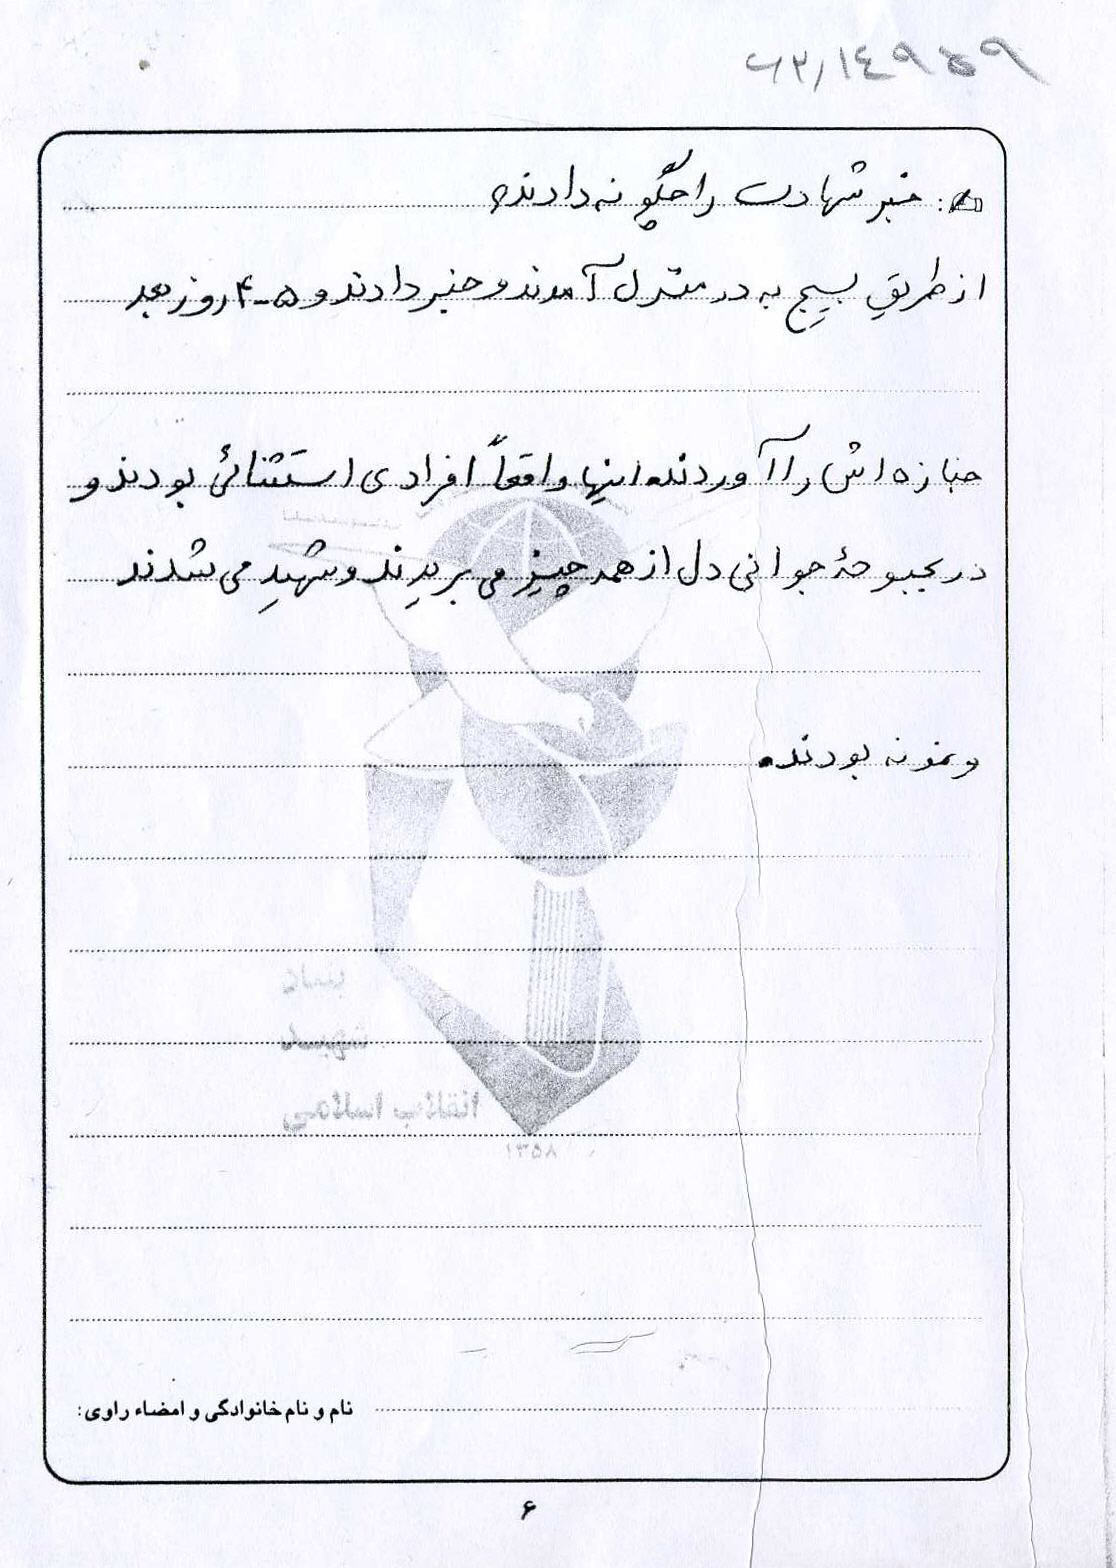 ۶۲/۱۴۹۵۹
خبر شهادت را چگونه دادند؟
از طریق بسیج به در منزل آمدند و خبر دادند و ۵-۴ روز بعد
جنازه اش را آوردند. اینها واقعاً افرادی استثنائی بودند و
در بحبوحهٔ جوانی دل از همه چیز می بریدند و شهید می شدند
و نمونه بودند.
بنیاد
شهید
انقلاب اسلامی
۱۳۵۸
نام و نام خانوادگی و امضاء راوی:
۶